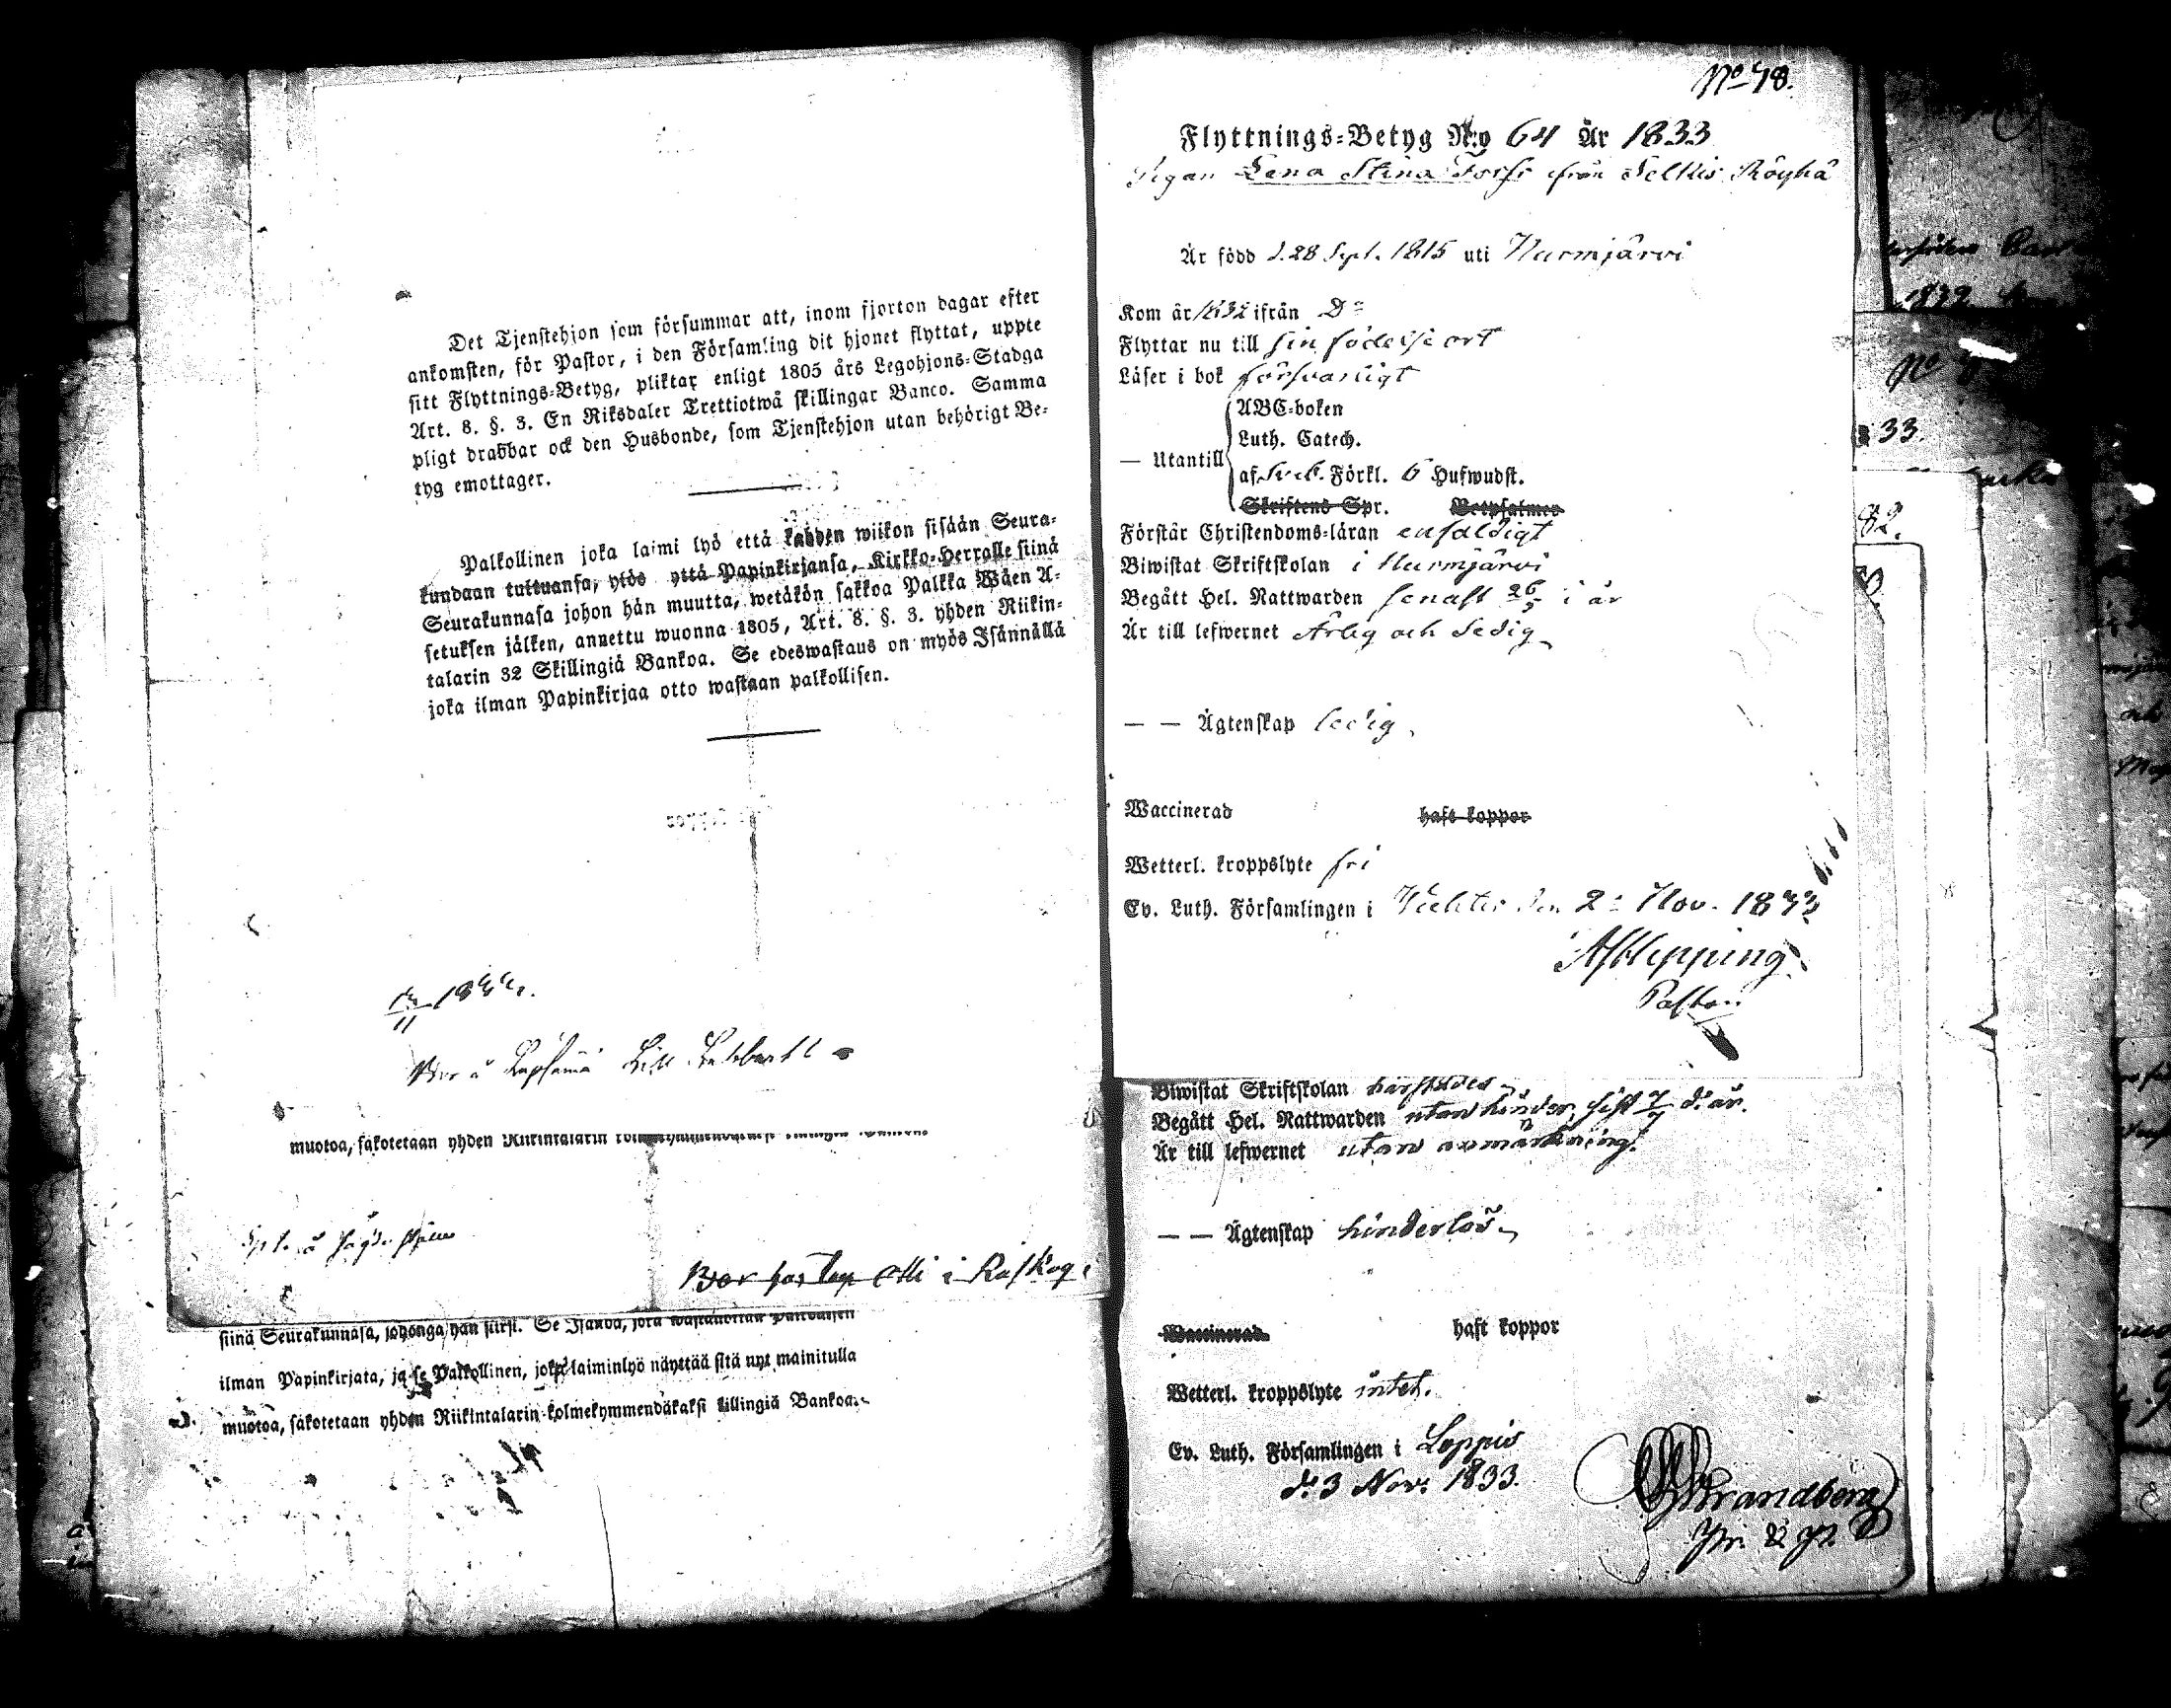 Det Tjenstehjon som försummar att, inom fjorton dagar efter
ankomsten, för Pastor, i den Församling dit hjonet flyttat, uppte
sitt Flyttnings-Betyg, pliktar enligt 1805 års Legohjons-Stadga
Art. 8. §. 3. En Riksdaler Trettiotwå skillingar Banco. Samma
pligt drabbar ock den Husbonde, som Tjenstehjon utan behörigt Be-
tyg emottager.
Palkollinen joka laimi lyö että kahden wiikon sisään Seura-
kundaan tultuansa, ylös yttä Papinkirjansa, Kirkko-Herralle siinä
Seurakunnasa johon hän muutta, wetäkön sakkoa Palkka Wäen A-
setuksen jälken, annettu wuonna 1805, Art. 8. §. 3. yhden Riikin-
talarin 32 Skillingiä Bankoa. Se edeswastaus on myös Isännällä
joka ilman Papinkirjaa otto wastaan palkollisen.
muotoa, sakotetaan yhden Riikintalarin
Bor hos Lap Olli i Raskog
siinä Seurakunnasa, johonga hän siirsi. Se Isändä, jota wastanottaa Palkollisen
ilman Papinkirjata, ja se Palkollinen, joka laiminlyö näyttää sitä nyt mainitulla
muotoa, sakotetaan yhden Riikintalarin kolmekymmendäkaksi killingiä Bankoa.
No 48.
Flyttnings-Betyg N:o 64 År 1833
Pigan Lena Stina Forss från Selkis Röyhä
Är född d. 28 Sept. 1815 uti Nurmijärvi
Kom år 1832 ifrån Do
Flyttar nu till sin födelse ort
Läser i bok försvarligt
ABC-boken
Luth. Catech.
— Utantill
af Sveb. Förkl. 6 Hufwudst.
Skriftens Spr. Botpsalmer
Förstår Christendoms-läran enfaldigt
Biwistat Skriftskolan i Nurmijärvi
Begått Hel. Nattwarden senast 26/5 i år
Är till lefwernet Ärlig och Sedig
— — Ägtenskap ledig.
Waccinerad haft koppor
Wetterl. kroppslyte fri
Ev. Luth. Församlingen i Wichtis den 2 Nov. 1833
Pastor
Biwistat Skriftskolan härstädes
Begått Hel. Nattwarden utan hinder, sist 7/7 d. år.
Är till lefwernet utan anmärkning.
— — Ägtenskap hinderlös
Waccinerad haft koppor
Wetterl. kroppslyte intet.
Ev. Luth. Församlingen i Loppis
d. 3 Nov. 1833.
Strandberg
33.
82.